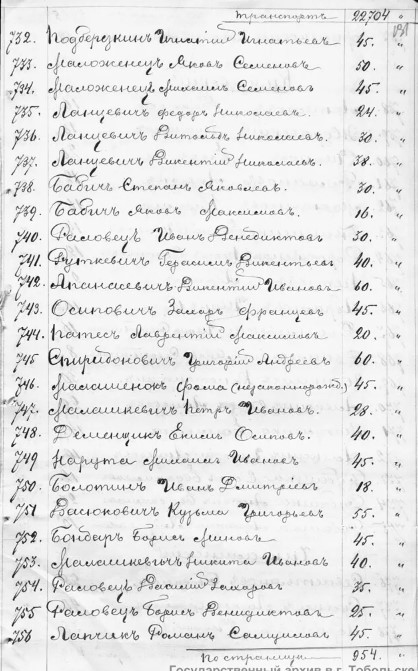 Транспортъ 22704 "
732. Подберезкинъ Игнатій Игнатьевъ 45. "
733. Маложенецъ Яковъ Семеновъ 50. "
734. Маложенецъ Михаилъ Семеновъ 45. "
735. Ланцевичъ Федоръ Николаевъ. 24. "
736. Ланцевичъ Витольдъ Николаевъ. 30. "
737. Ланцевичъ Викентій Николаевъ. 38. "
738. Бабичъ Степанъ Яковлевъ. 30. "
739. Бабичъ Яковъ Максимовъ. 16. "
740. Фаловецъ Иванъ Венедиктовъ 30. "
741. Руткевичъ Герасимъ Викентьевъ 40. "
742. Апанасевичъ Викентій Ивановъ 60. "
743. Осиповичъ Францевъ 45. "
744. Катесъ Лаврентій Максимовъ 20. "
745 Спиридоновичъ Григорій Андреевъ 60. "
746. Малашенокъ Фома (незаконнорожд.) 45. "
747. Малашкевичъ Петръ Ивановъ. 28. "
748. Деменщикъ Осиповъ. 40. "
749 Нарута Михаилъ Ивановъ 45. "
750. Болотинъ Иванъ Дмитріевъ 18. "
751 Васюковичъ Кузьма Григорьевъ 55. "
752. Бондарь Борисъ Миновъ 45. "
753. Малашкевичъ Никита Ивановъ 40. "
754. Фаловецъ Василій Захаровъ 35. "
755 Фаловецъ Борисъ Венидиктовъ 25. "
756 Лапчикъ Романъ 45. "
По страницѣ 954. "
Государственный архив в г. Тобольске